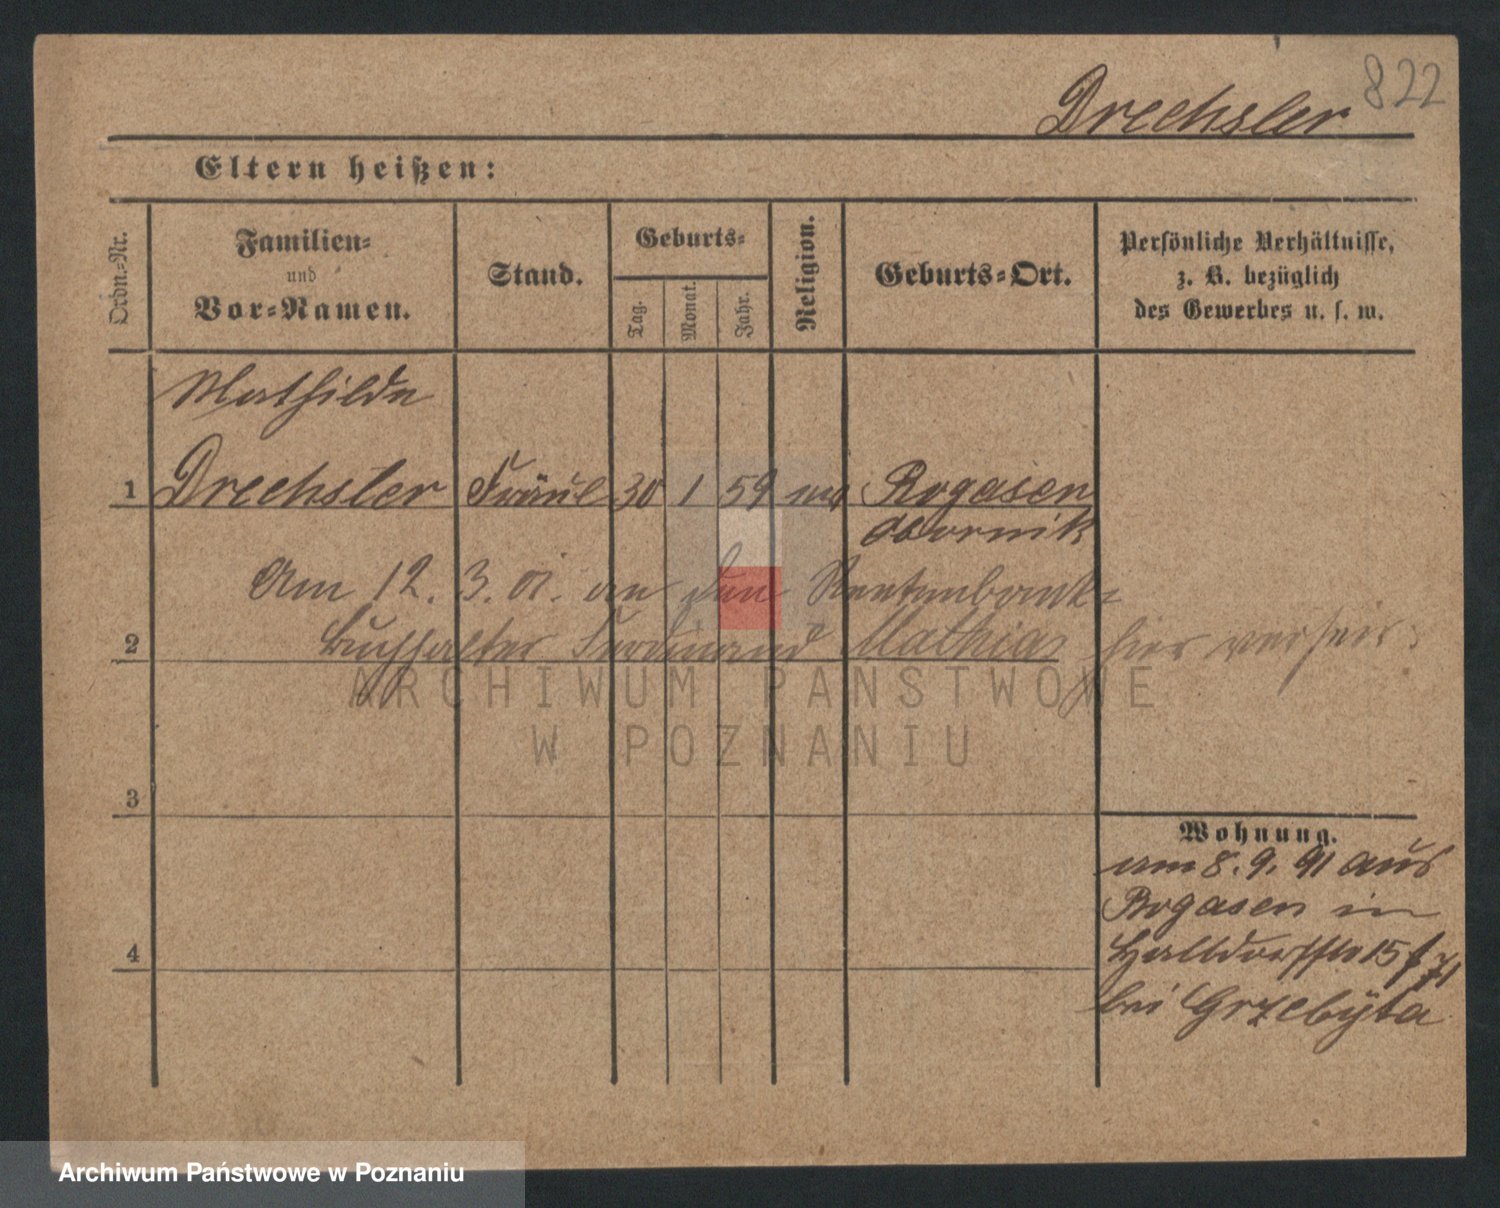 822
Drechsler
Eltern heißen:
Ordn.-Nr.
Familien-
und
Vor-Namen.
Stand.
Geburts-
Tag.
Monat.
Jahr.
Religion.
Geburts-Ort.
Persönliche Verhältnisse,
z. B. bezüglich
des Gewerbes u. s. w.
Mathilde
1 Drechsler Fräul 30 1 59 Rogasen
Obornik
Am 12. 3. 01. an den Rentenbank-
2 Buchhalter Ferdinand Mathias hier verheir:
3
4
Wohnung.
am 8. 9. 91 aus
Rogasen in
Halbdorfstr 15
bei Grzebyta
ARCHIWUM PAŃSTWOWE
W POZNANIU
Archiwum Państwowe w Poznaniu